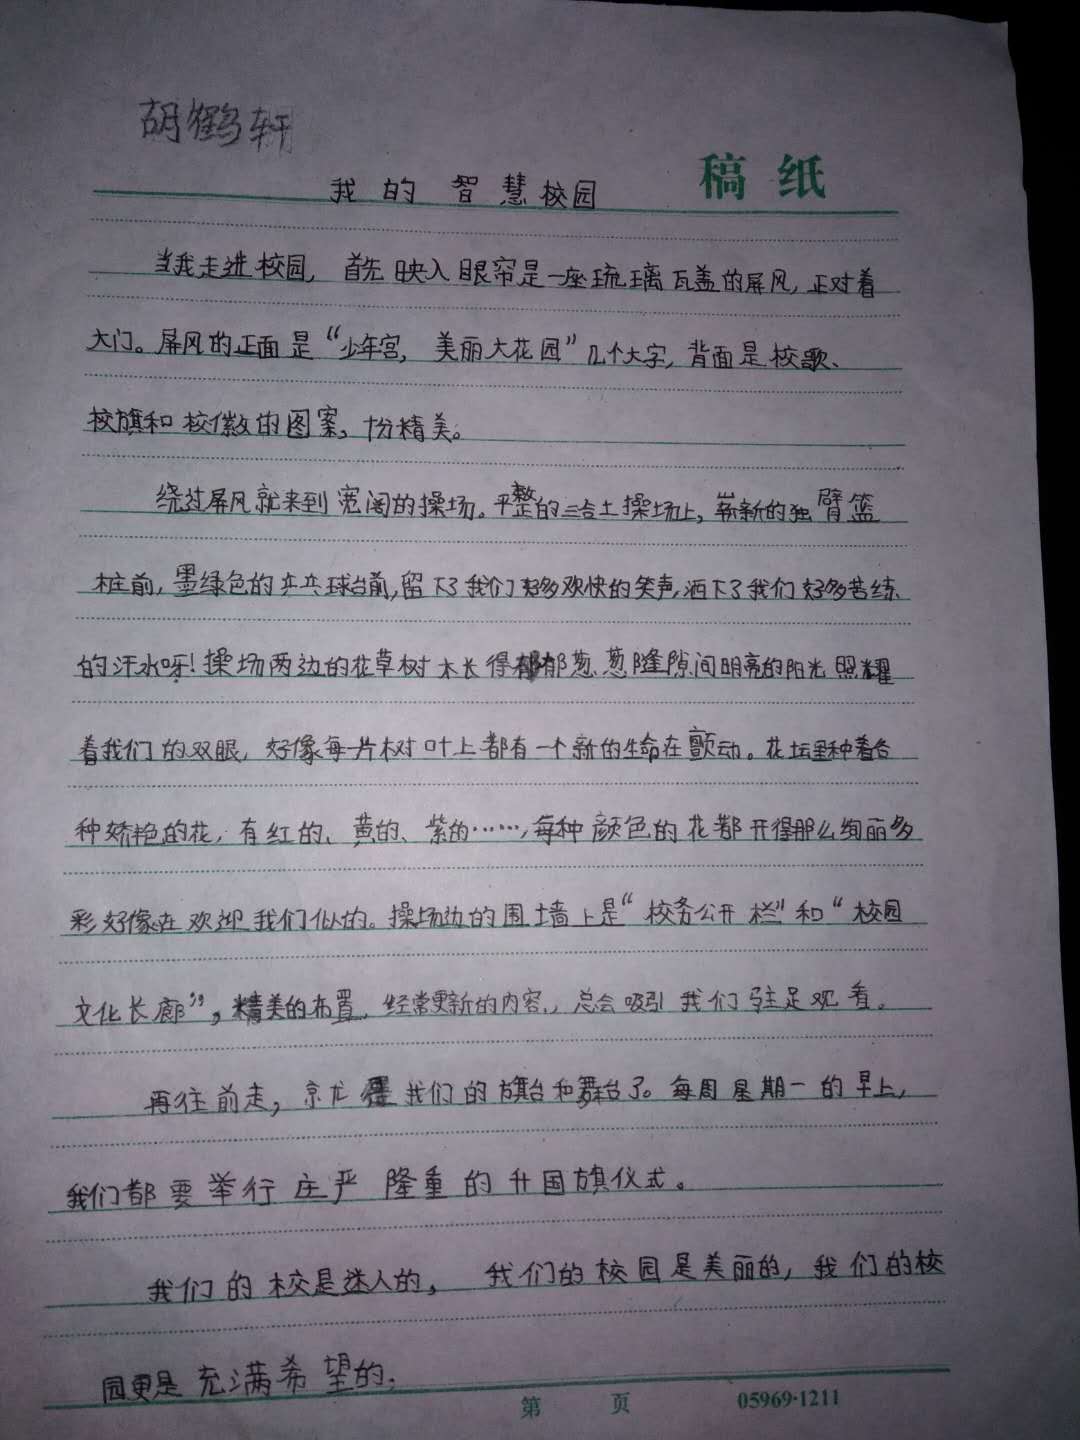 胡鹤轩
稿纸
我的智慧校园
当我走进校园，首先映入眼帘是一座琉璃瓦盖的屏风，正对着
大门。屏风的正面是“少年宫，美丽大花园”几个大字，背面是校歌、
校旗和校徽的图案，十份精美。
绕过屏风就来到宽阔的操场。平整的三合土操场上，崭新的独臂篮
桩前，墨绿色的乒乓球台前，留下了我们好多欢快的笑声，洒下了我们好多苦练
的汗水呀！操场两边的花草树木长得郁郁葱葱隆隙间明亮的阳光照耀
着我们的双眼，好像每一片树叶上都有一个新的生命在颤动。花坛里种着各
种娇艳的花，有红的、黄的、紫的……，每种颜色的花都开得那么绚丽多
彩好像在欢迎我们似的。操场边的围墙上是“校务公开栏”和“校园
文化长廊”，精美的布置，经常更新的内容，总会吸引我们驻足观看。
再往前走，京尤是我们的旗台和舞台了。每周星期一的早上，
我们都要举行庄严隆重的升国旗仪式。
我们的校是迷人的，我们的校园是美丽的，我们的校
园更是充满希望的，
第 页 05969·1211